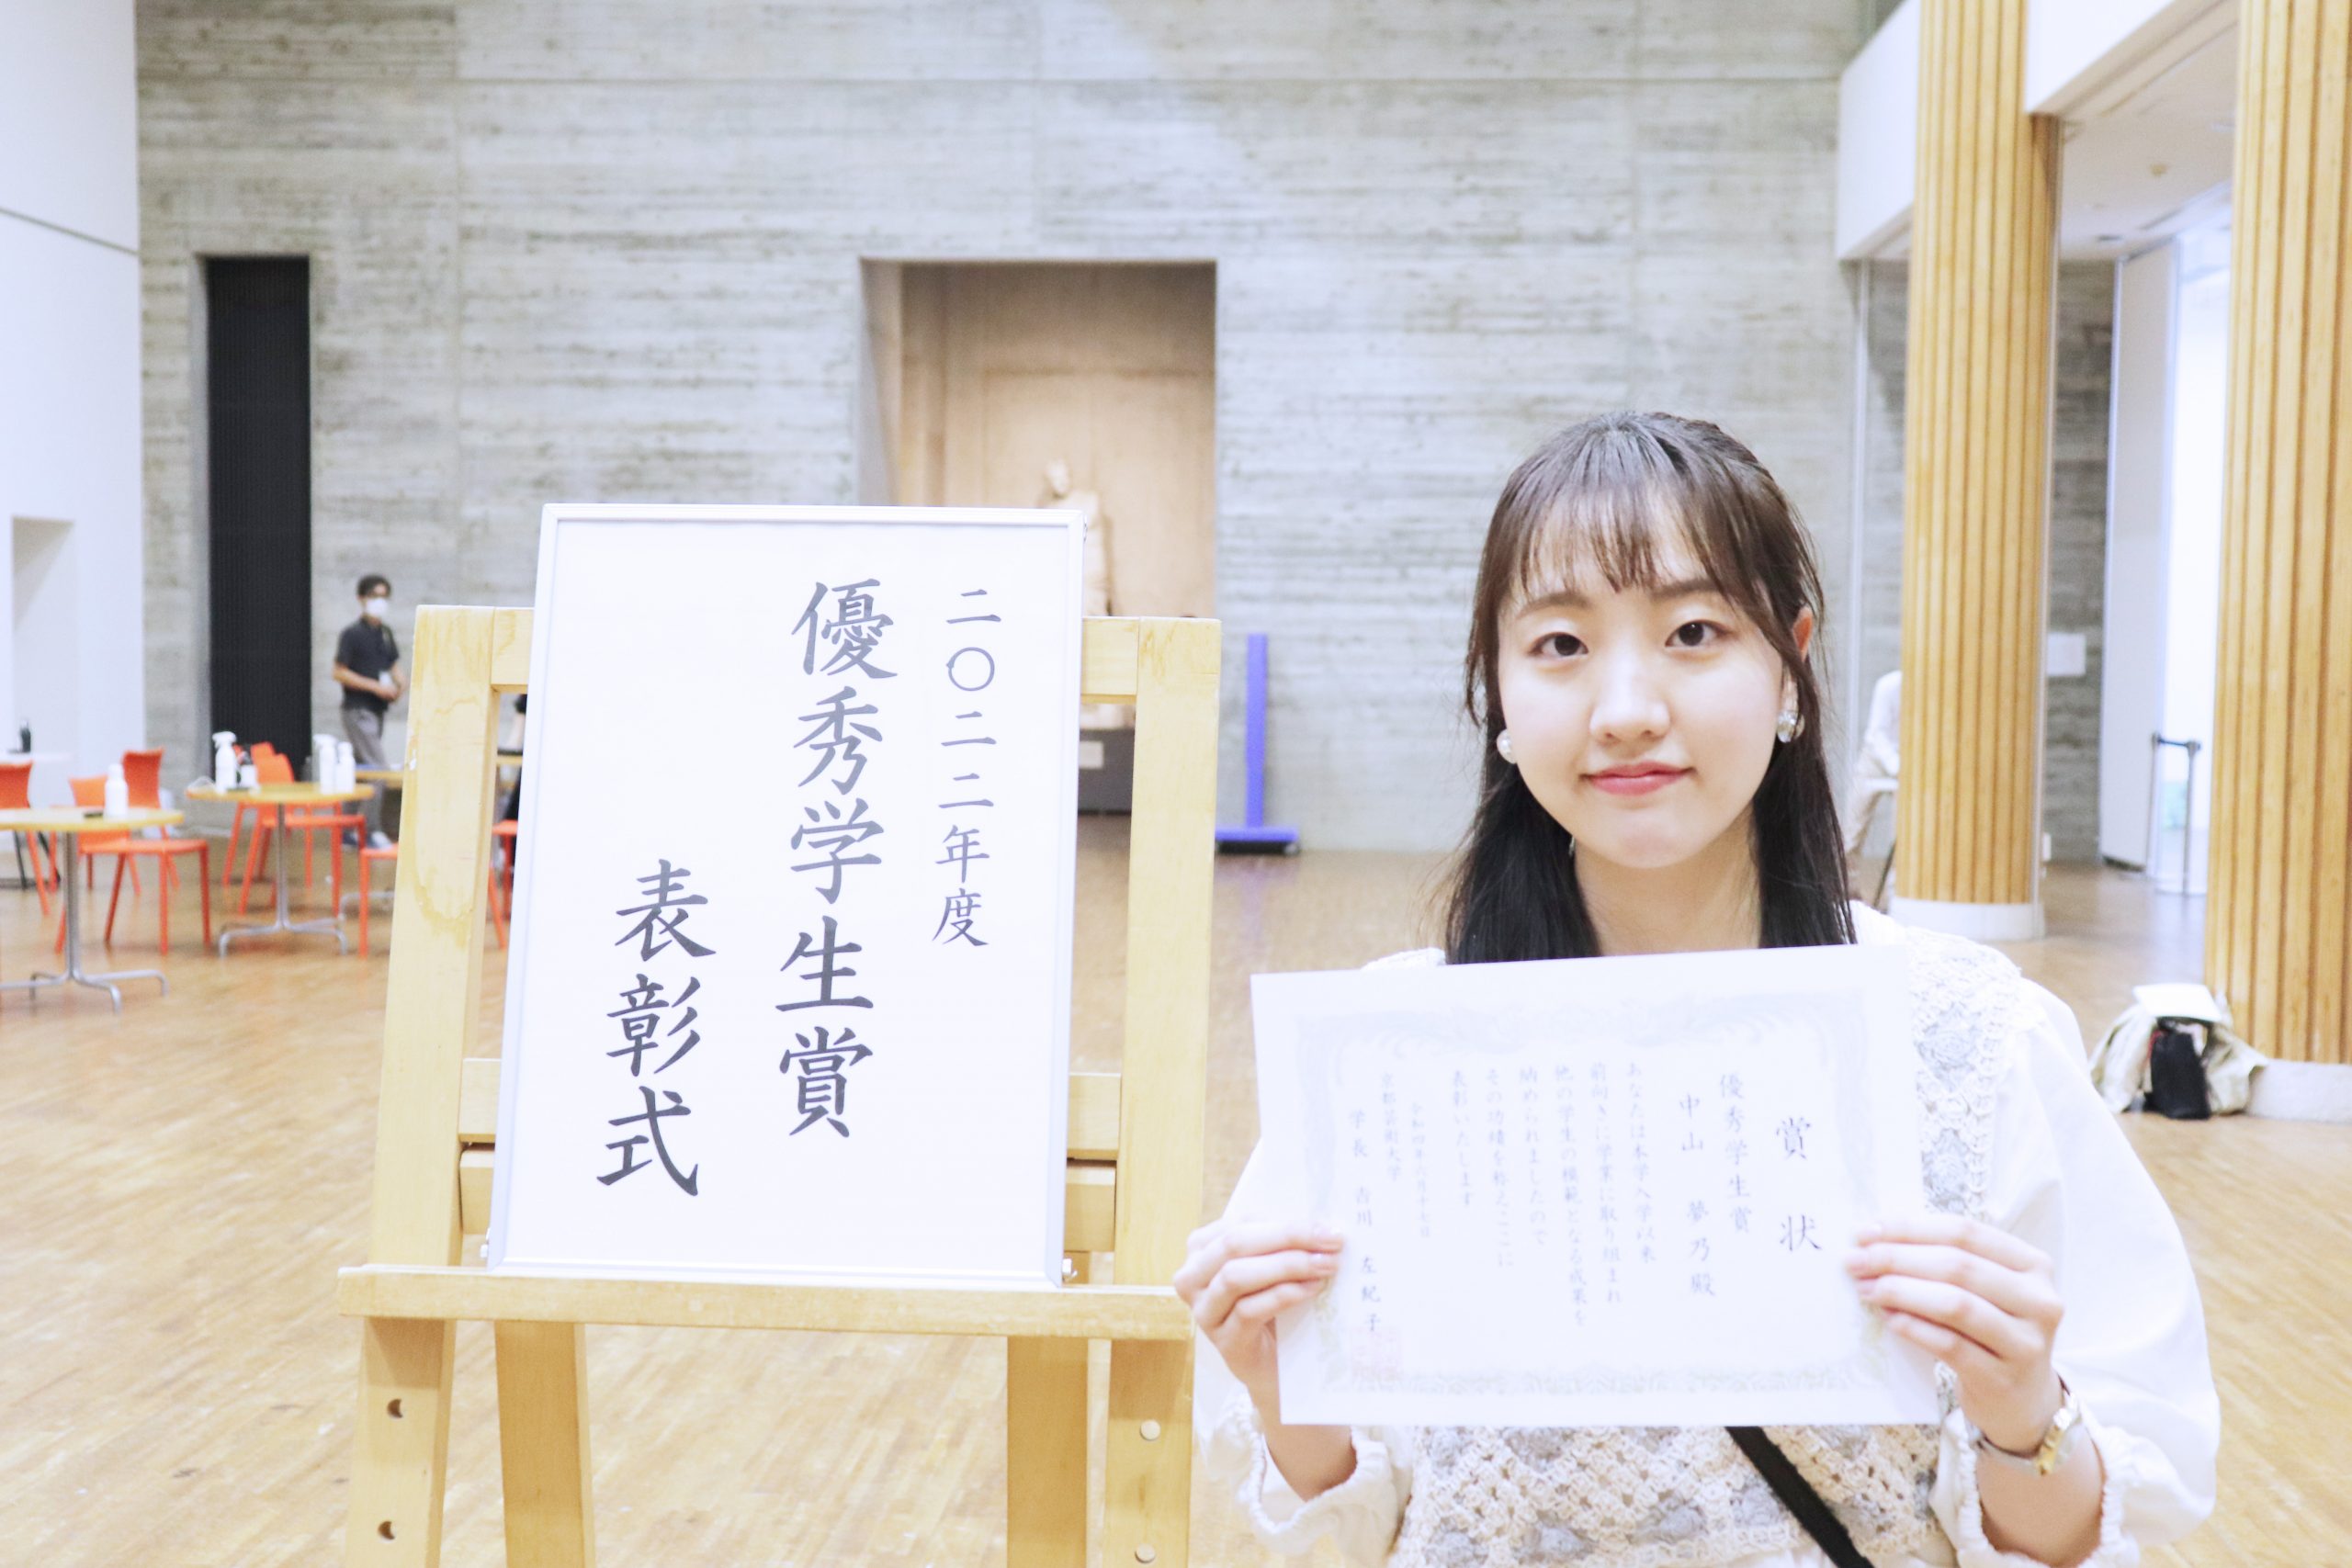 二〇二二年度
優秀学生賞
表彰式
賞状
優秀学生賞
中山 夢乃殿
あなたは本学入学以来
前向きに学業に取り組まれ
他の学生の模範となる成果を
納められましたので
その功績を称えここに
表彰いたします
令和四年六月十七日
京都芸術大学
学長 吉川 左紀子